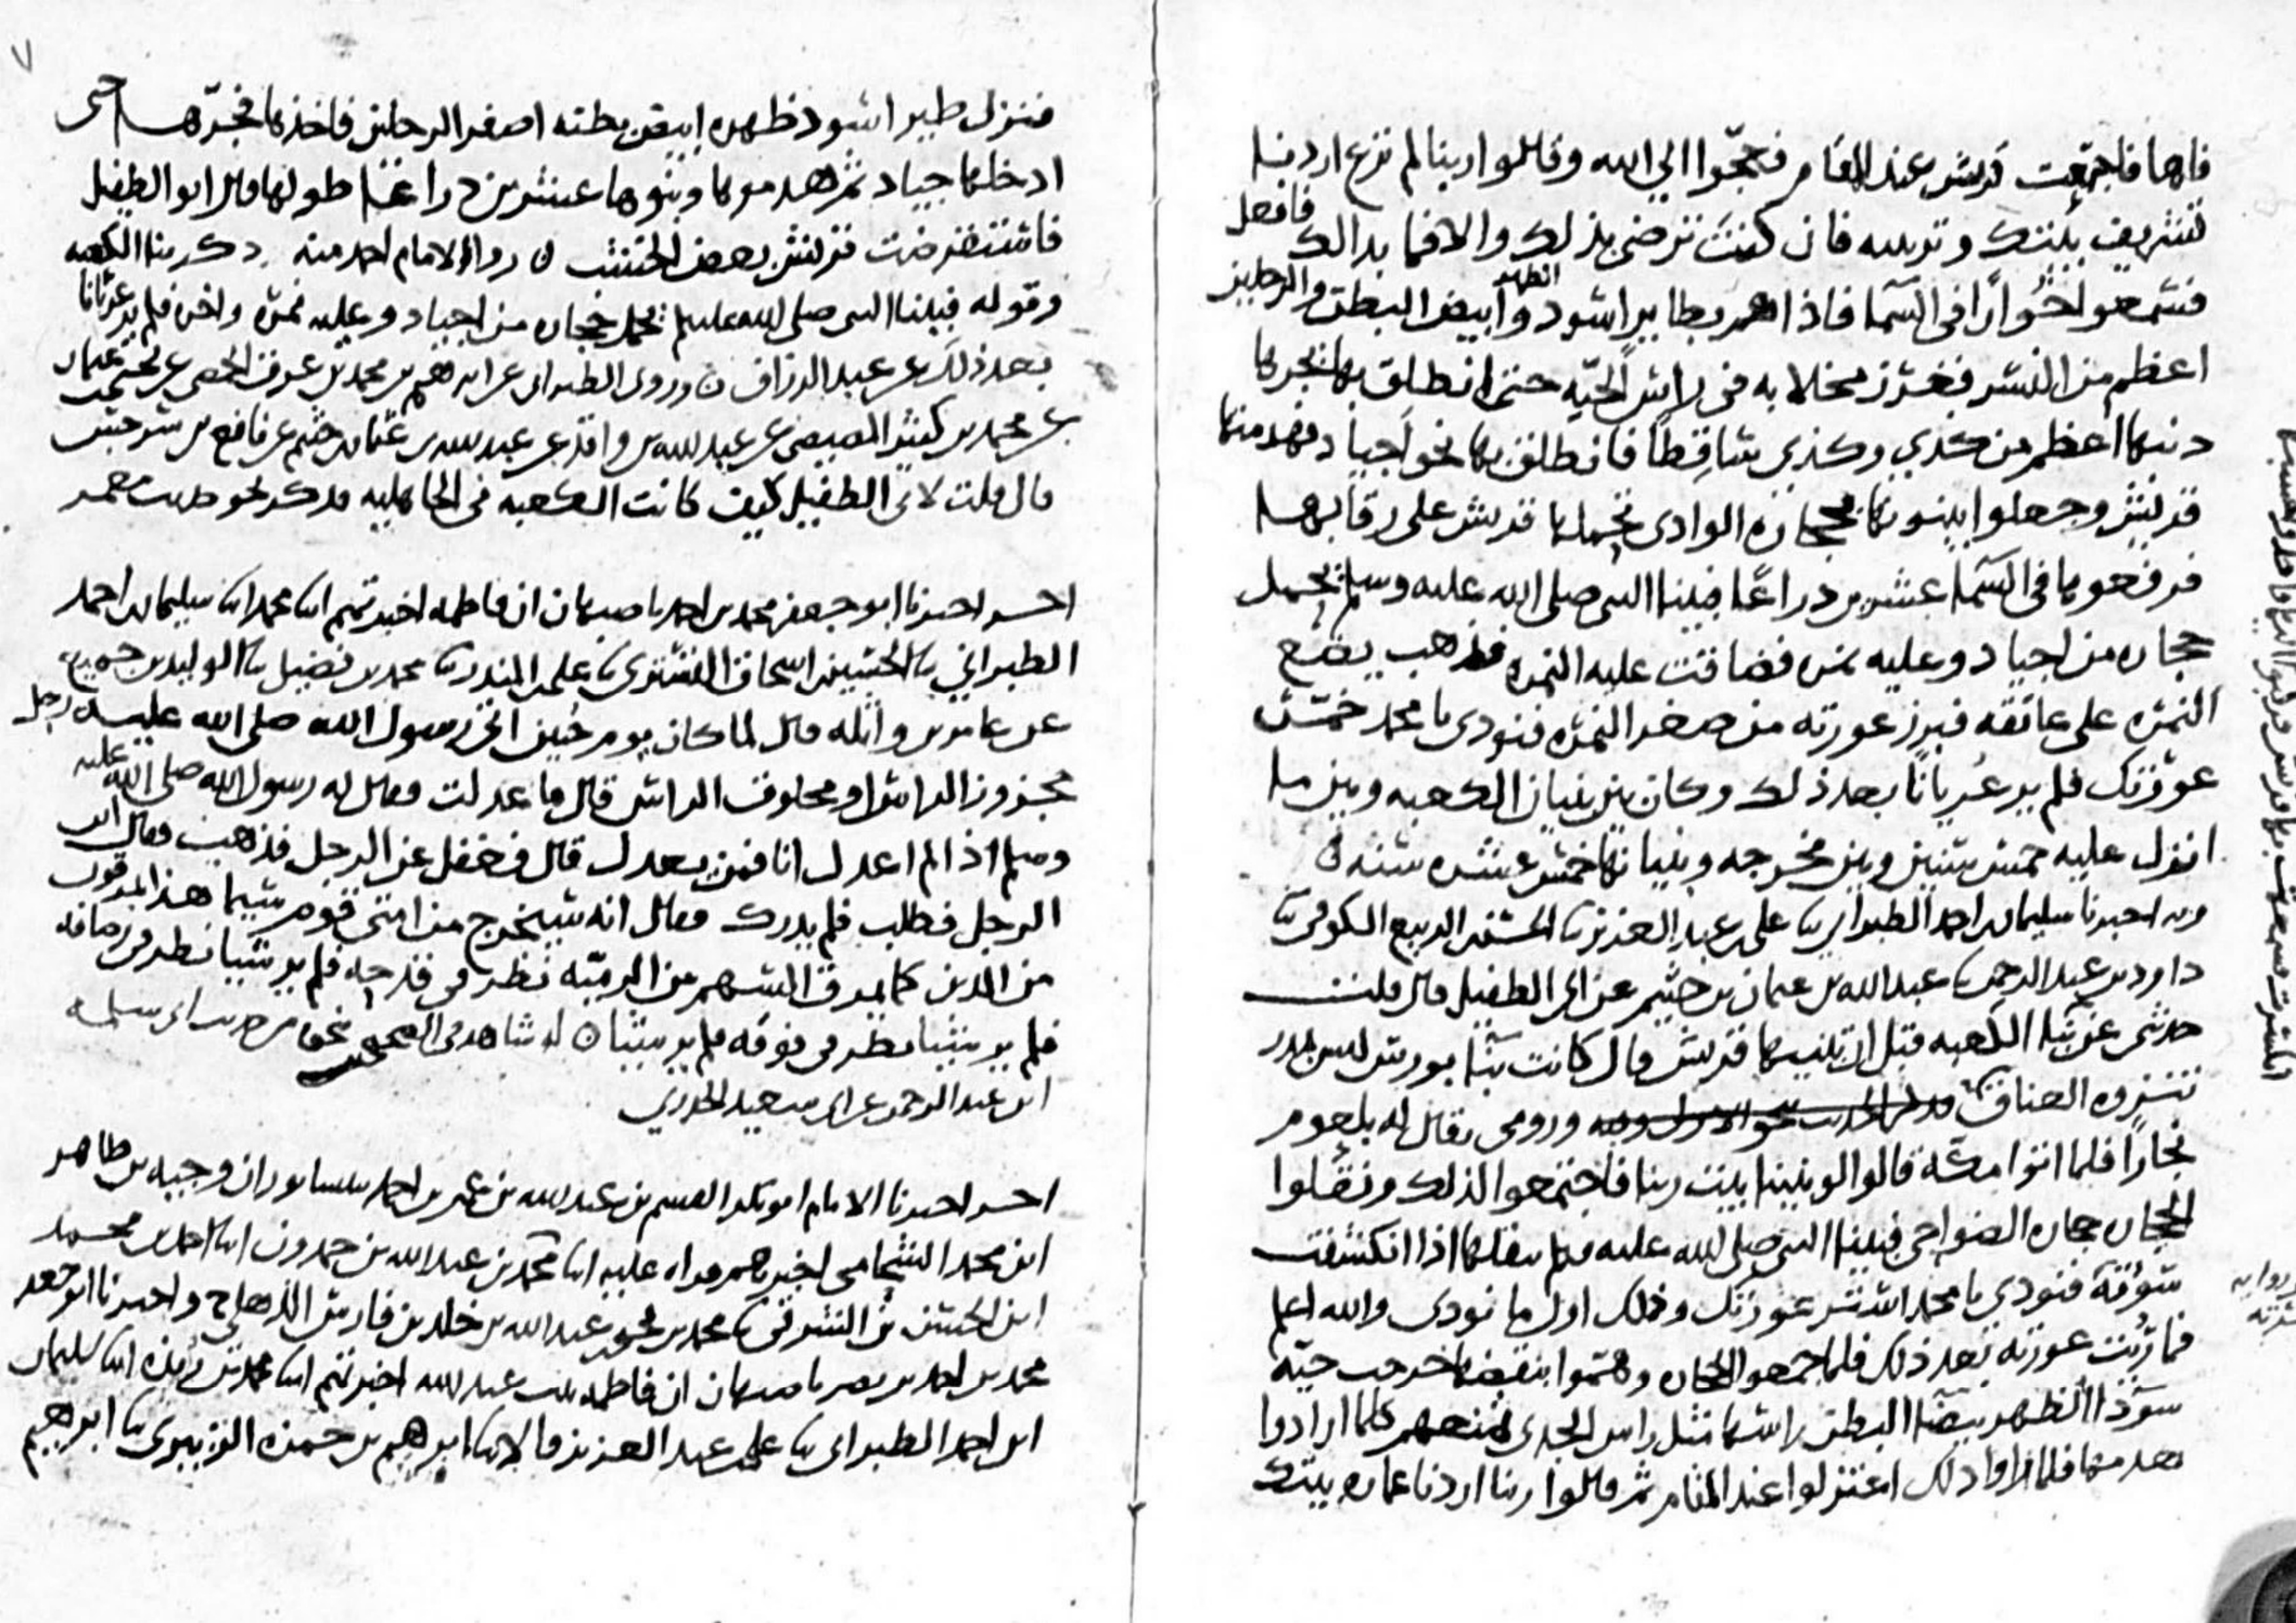 فاها فاجتمعت قريش عند المقام فعجّوا الى الله وقالوا ربنا لم نرع اردنا
تشريف بيتك وتربيبه فان كنت ترضى بذلك والا فما بدالك فافعل
فسمعوا خُوارًا فى السما فاذا هم بطاير اسود الظهر وابيض البطن والرجلين
اعظم من النسر فغرز مخلابه فى راس الحيّه حتى انطلق بها يجرها
ذنبها اعظم من كذى وكذى ساقِطًا فانطلق بها نحو اجياد فهدمتها
قريش وجعلوا يبنونها بحجاره الوادى تحملها قريش على رقابها
فرفعوها فى السما عشرين ذراعًا فبينا النبى صلى الله عليه وسلم يحمل
حجاره من اجياد وعليه نمره فضاقت عليه النمره فذهب يضع
النمره على عاتقه فبرز عورته من صغر النمره فنودى يا محمد خمّر
عورتك فلم ير عُريانًا بعد ذلك وكان بين بنيان الكعبه وبين ما
انزل عليه خمس سنين وبين مخرجه وبنيانها خمس عشره سنه
وبه اخبرنا سليمان بن احمد الطبرانى ثنا على بن عبد العزيز ثنا الحسن بن الربيع الكوفى ثنا
داود بن عبد الرحمن ثنا عبد الله بن عثمان بن خثيم عن ابى الطفيل قال قلت
حدثنى عن بنا الكعبه قبل ان تبنيها قريش قال كانت بنا برضم ليس بمدر
تنزوه العناق ورومى يقال له بلعوم
نجارًا فلما اتوا مكة قالوا لو بنينا بيت ربنا فاجتمعوا لذلك ونقلوا
الحجاره حجاره الضواحى فبينا النبى صلى الله عليه وسلم ينقلها اذا انكشفت
سَوْءَته فنودى يا محمد استر عورتك وذلك اول ما نودى والله اعلم
فما رُئيت عورته بعد ذلك فلما جمعوا الحجاره وهمّوا بنقضها خرجت حيّه
سودا الظهر بيضا البطن راسها مثل راس الجدى تمنعهم كلما ارادوا
هدمها فلما راوا ذلك اعتزلوا عند المقام ثم قالوا ربنا اردنا عماره بيتك
فنزل طير اسود ظهره ابيض بطنه اصفر الرجلين فاخذها فجرّها حتى
ادخلها جياد ثم هدموها وبنوها عشرين ذراعًا طولها قال ابو الطفيل
فاستقرضت قريش بعض الخشب رواه الامام احمد منه ذكر بنا الكعبه
وقوله فبينا النبى صلى الله عليه وسلم يحمل حجاره من اجياد وعليه نمره واخره فلم ير عريانا
بعد ذلك عن عبد الرزاق وروى الطبرانى عن ابرهيم بن محمد بن عوف الحمصى عن
محمد بن كثير المصيصى عن عبد الله بن واقد عن عبد الله بن عثمان بن خثيم عن نافع بن سرجس
قال قلت لابى الطفيل كيف كانت الكعبه فى الجاهليه فذكر نحو حديث معمر
اخبرنا ابو جعفر محمد بن احمد باصبهان ان فاطمه اخبرتهم ابنا محمد ابنا سليمان بن احمد
الطبرانى ثنا الحسين بن اسحاق التسترى ثنا على بن المنذر ثنا محمد بن فضيل ثنا الوليد بن جميع
عن عامر بن واثله قال لما كان يوم حُنين اتى رسول الله صلى الله عليه رجل
مجزوز الراس او محلوق الراس قال ما عدلت فقال له رسول الله صلى الله عليه
وسلم اذا لم اعدل انا فمن يعدل قال فغفل عن الرجل فذهب فقال اين
الرجل فطلب فلم يدرك فقال انه سيخرج من امتى قوم سيما هذا يمرقون
من الدين كما يمرق السهم من الرميّه نظر فى قدحه فلم ير شيا نظر فى رصافه
فلم ير شيا نظر فى فوقه فلم ير شيا له شاهد فى الصحيح نحوه من حديث ابى سلمه
ابن عبد الرحمن عن ابى سعيد الخدرى
اخبرنا الامام ابو بكر القسم بن عبد الله بن عمر بن احمد بنيسابور ان وجيه بن طاهر
ابن محمد الشحامى اخبرهم قراه عليه ابنا محمد بن عبد الله بن حمدون ابنا احمد بن محمد
ابن الحسن بن الشرقى ثنا محمد بن يحيى بن عبد الله بن خلد بن فارس الذهلى ح واخبرنا ابو جعفر
محمد بن احمد بن نصر باصبهان ان فاطمه بنت عبد الله اخبرتهم ابنا محمد بن ريذه ابنا سليمان
ابن احمد الطبرانى ثنا على بن عبد العزيز قالا ثنا ابرهيم بن حمزه الزبيرى ثنا ابرهيم